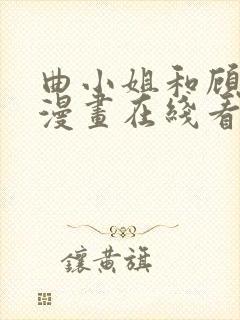 曲小姐和顾
漫畫在綫看
鑲黃旗